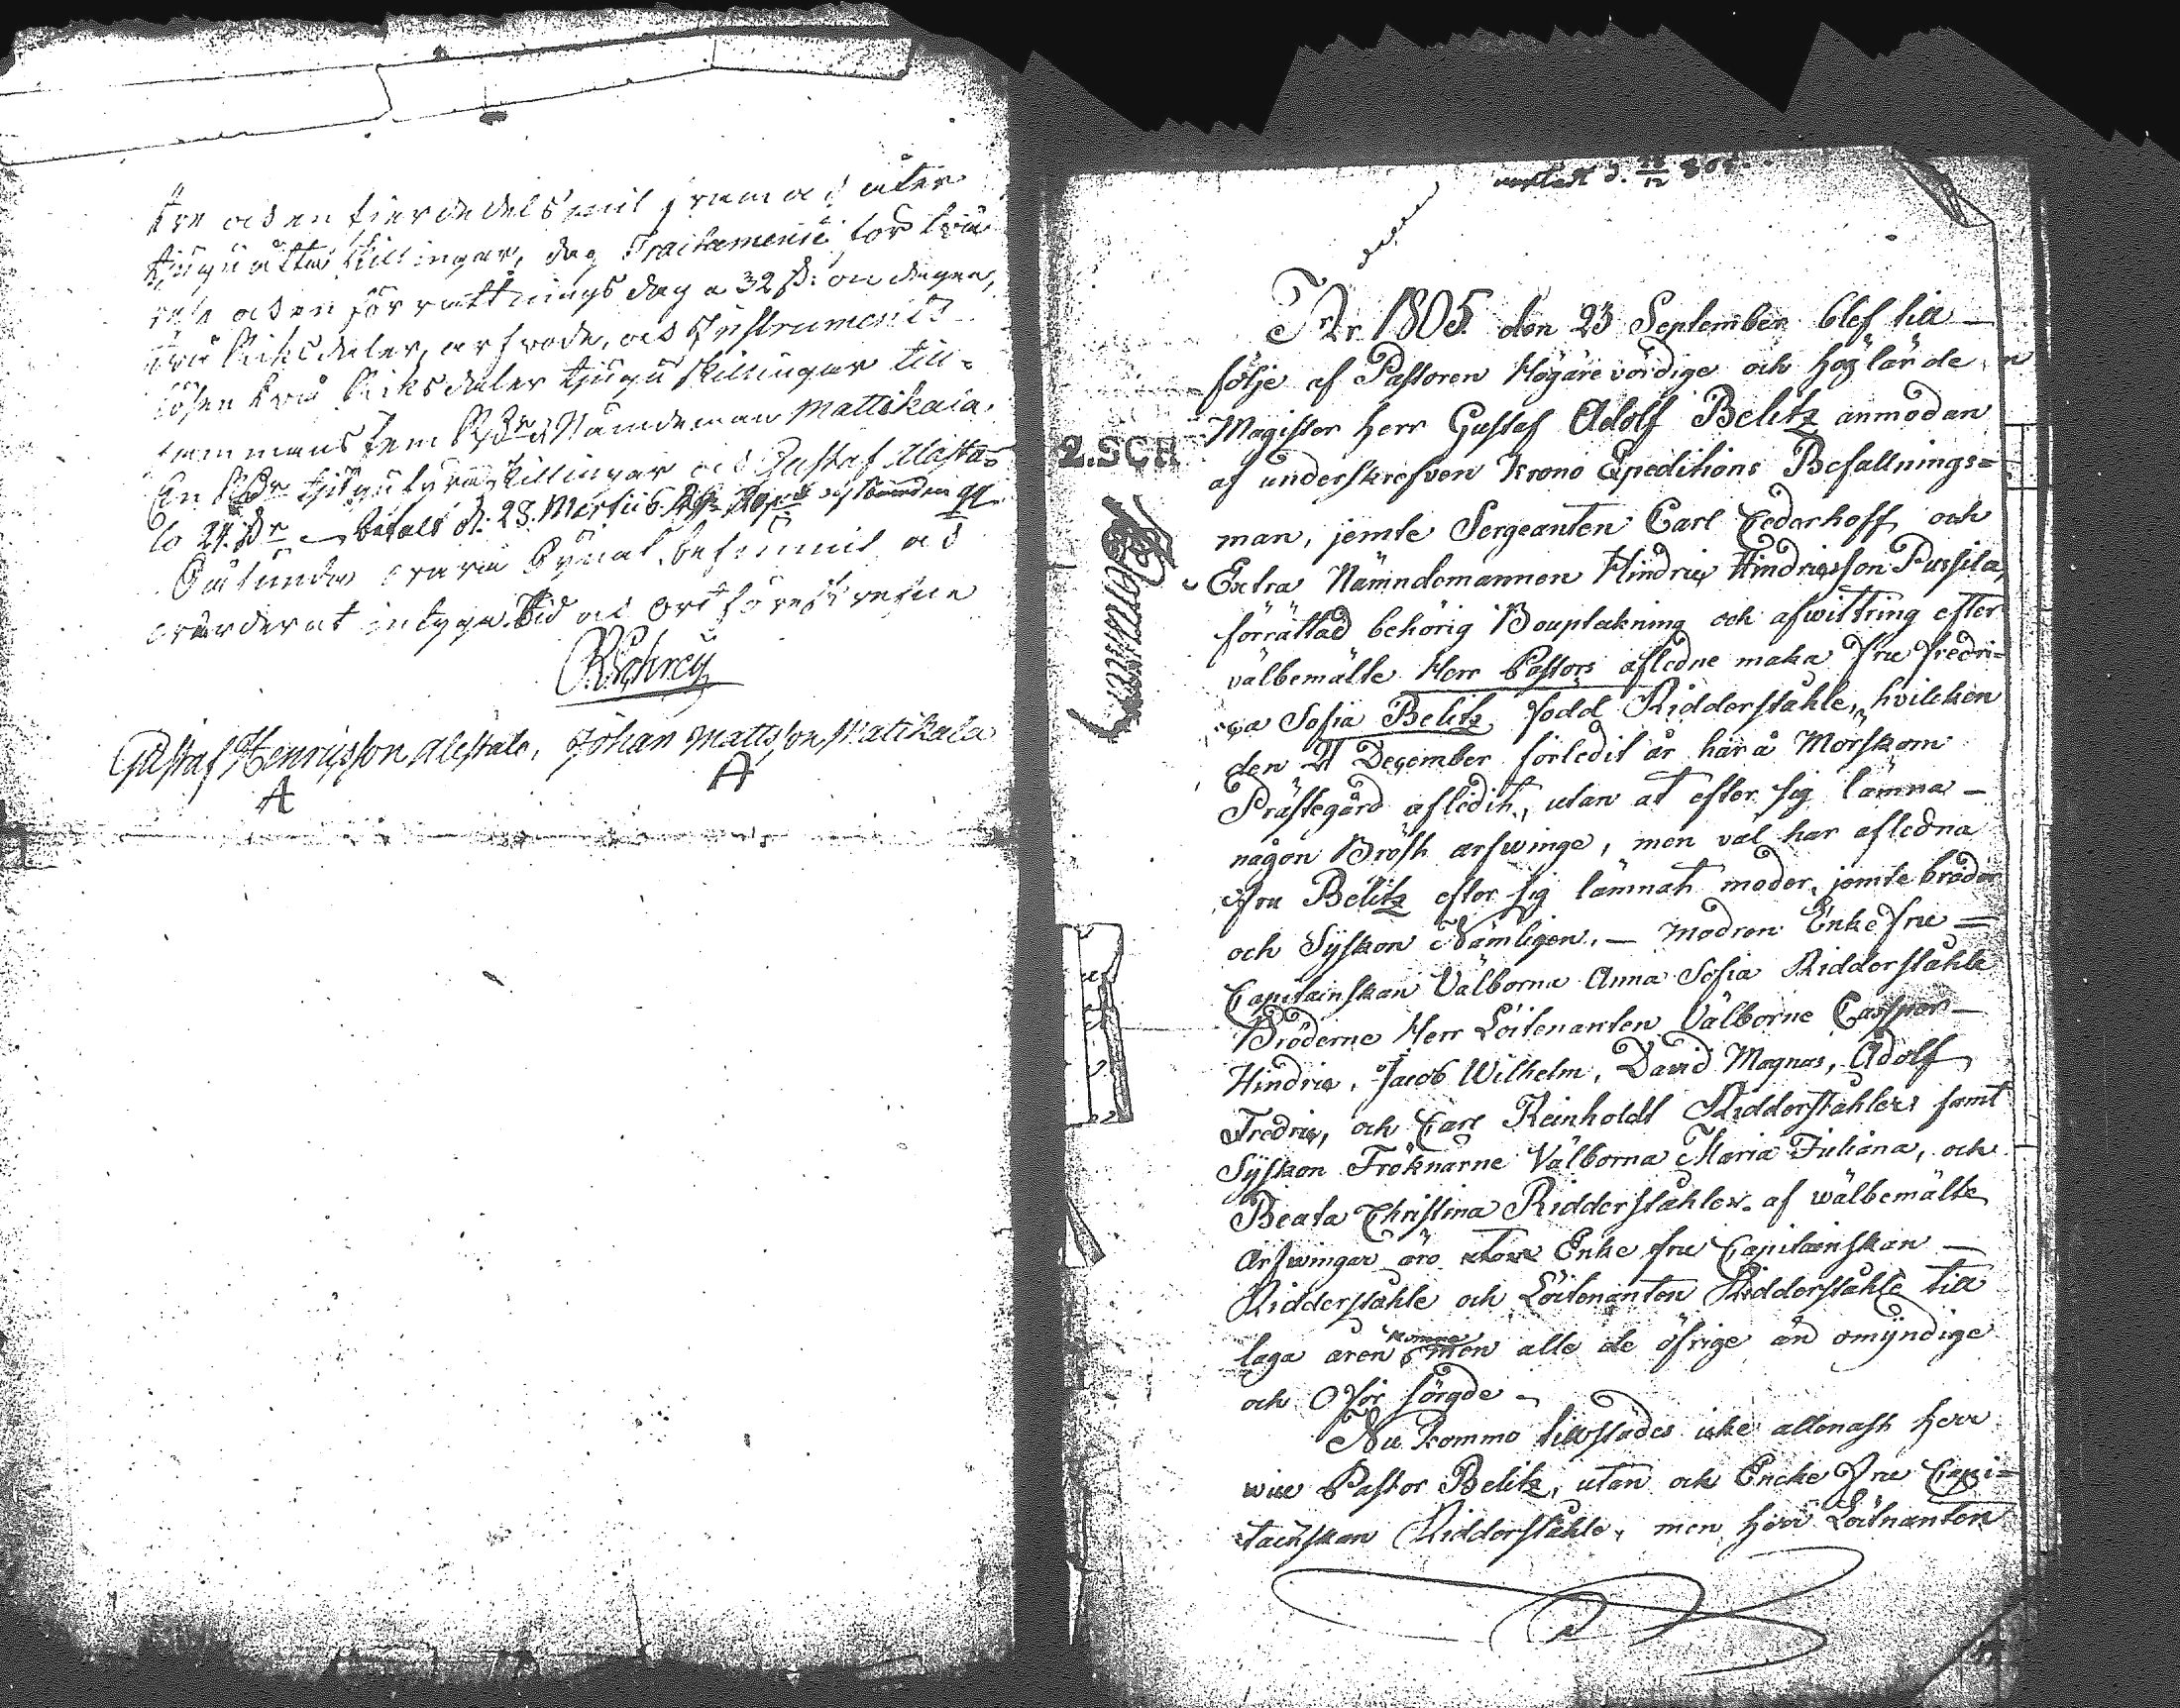 tre och en fierdedels mil fram och åter
tjuguåtta skillingar, dag Tractamente för två
rese och en förrättnings dag a 32 s: om dagen,
två Riksdaler, arfvode, och Instruments
lösen två Riksdaler tjugu skillingar till-
sammans fem Rdr, Nämndeman Mattikala,
En Rdr tjugufyra skillingar och Gustaf Alesta-
lo 24. betalt d: 23. Martii
Sålunda vara Synat, befunnit och
värderat intyga. Tid och Ort förestrefne
Gustaf Henricsson Alestalo, Johan Mattsson Mattikala
A A
d. 12
År 1805 den 23 September blef till
följe af Pastoren Högärevördige och höglärde
Magister Herr Gustaf Adolf Belitz anmodan
2.SCH
af underskrefven Krono Expeditions Befallnings=
man, jemte Sergeanten Carl Cederhoff och
Extra Nämndemannen Hindric Hindricsson Pussila,
förrättad behörig Bouptekning och afwittring efter
välbemälte Herr Pastors afledne maka Fru Fredri=
ca Sofia Belitz, född Ridderstahle, hvilcken
den 21 December förledit år här å Morskom
Prästegård afledit, utan at efter sig lämna
någon Bröst arfwinge, men väl har afledna
Fru Belitz efter sig lämnat moder, jemte bröder
och Syskon Nämligen. — Modren Enkefru =
Capitainskan Välborna Anna Sofia Ridderstahle
Bröderne Herr Löitenanten Välborne Casper
Hindric, Jacob Wilhelm, David Magnus, Adolf
Fredric, och Carl Reinholdt Ridderstahler samt
Syskon Fröknarne Välborna Maria Juliana, och
Beata Christina Ridderstahler. af wälbemälte
Arfwingar äro Enke Fru Capitainskan
Ridderstahle och Löitenanten Ridderstahle till
laga åren komne men alle de öfrige än omyndige
och Oförsörgde
Nu kommo tillstädes icke allenast Herr
wice Pastor Belitz, utan och Encke Fru Capi=
tainskan Ridderstahle, men Herr Löitnanten